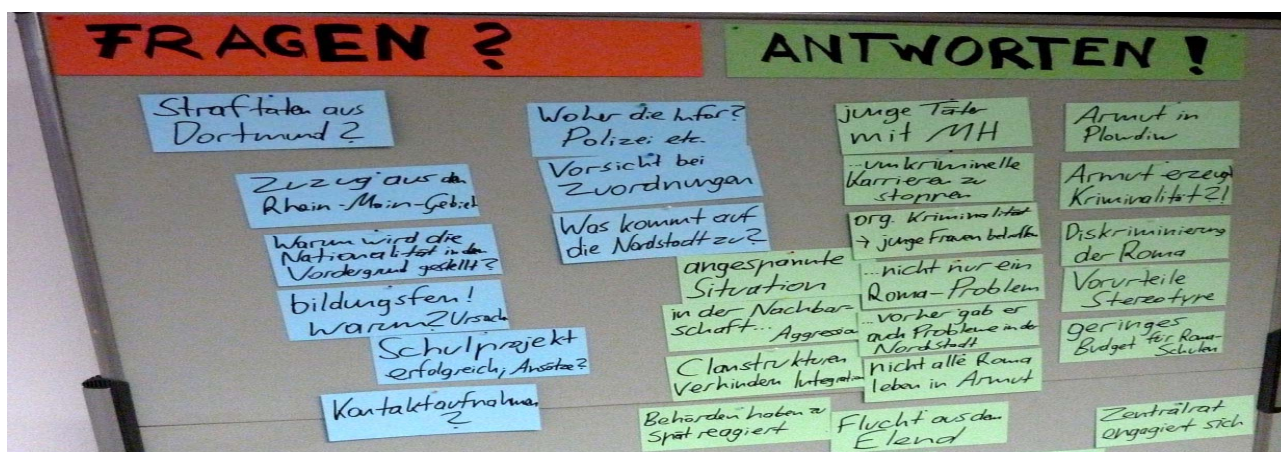 FRAGEN ?
Straftaten aus
Dortmund ?
Zuzug aus dem
Rhein-Main-Gebiet
Warum wird die
Nationalität in den
Vordergrund gestellt ?
bildungsfern !
Warum ? Ursach
Schulprojekt
erfolgreich, Ansätze ?
Kontaktaufnahmen
?
Woher die Infor ?
Polizei etc.
Vorsicht bei
Zuordnungen
Was kommt auf
die Nordstadt zu ?
ANTWORTEN !
angespannte
Situation
in der Nachbar-
schaft...
Clanstrukturen
verhindern Integration
Behörden haben zu
spät reagiert
junge Täter
mit MH
...um kriminelle
Karrieren zu
stoppen
org. Kriminalität
→ junge Frauen betroffen
...nicht nur ein
Roma-Problem
...vorher gab es
auch Probleme in der
Nordstadt
nicht alle Roma
leben in Armut
Flucht aus dem
Elend
Armut in
Plowdiw
Armut erzeugt
Kriminalität ?!
Diskriminierung
der Roma
Vorurteile
Stereotype
geringes
Budget für Roma-
Schulen
Zentralrat
engagiert sich